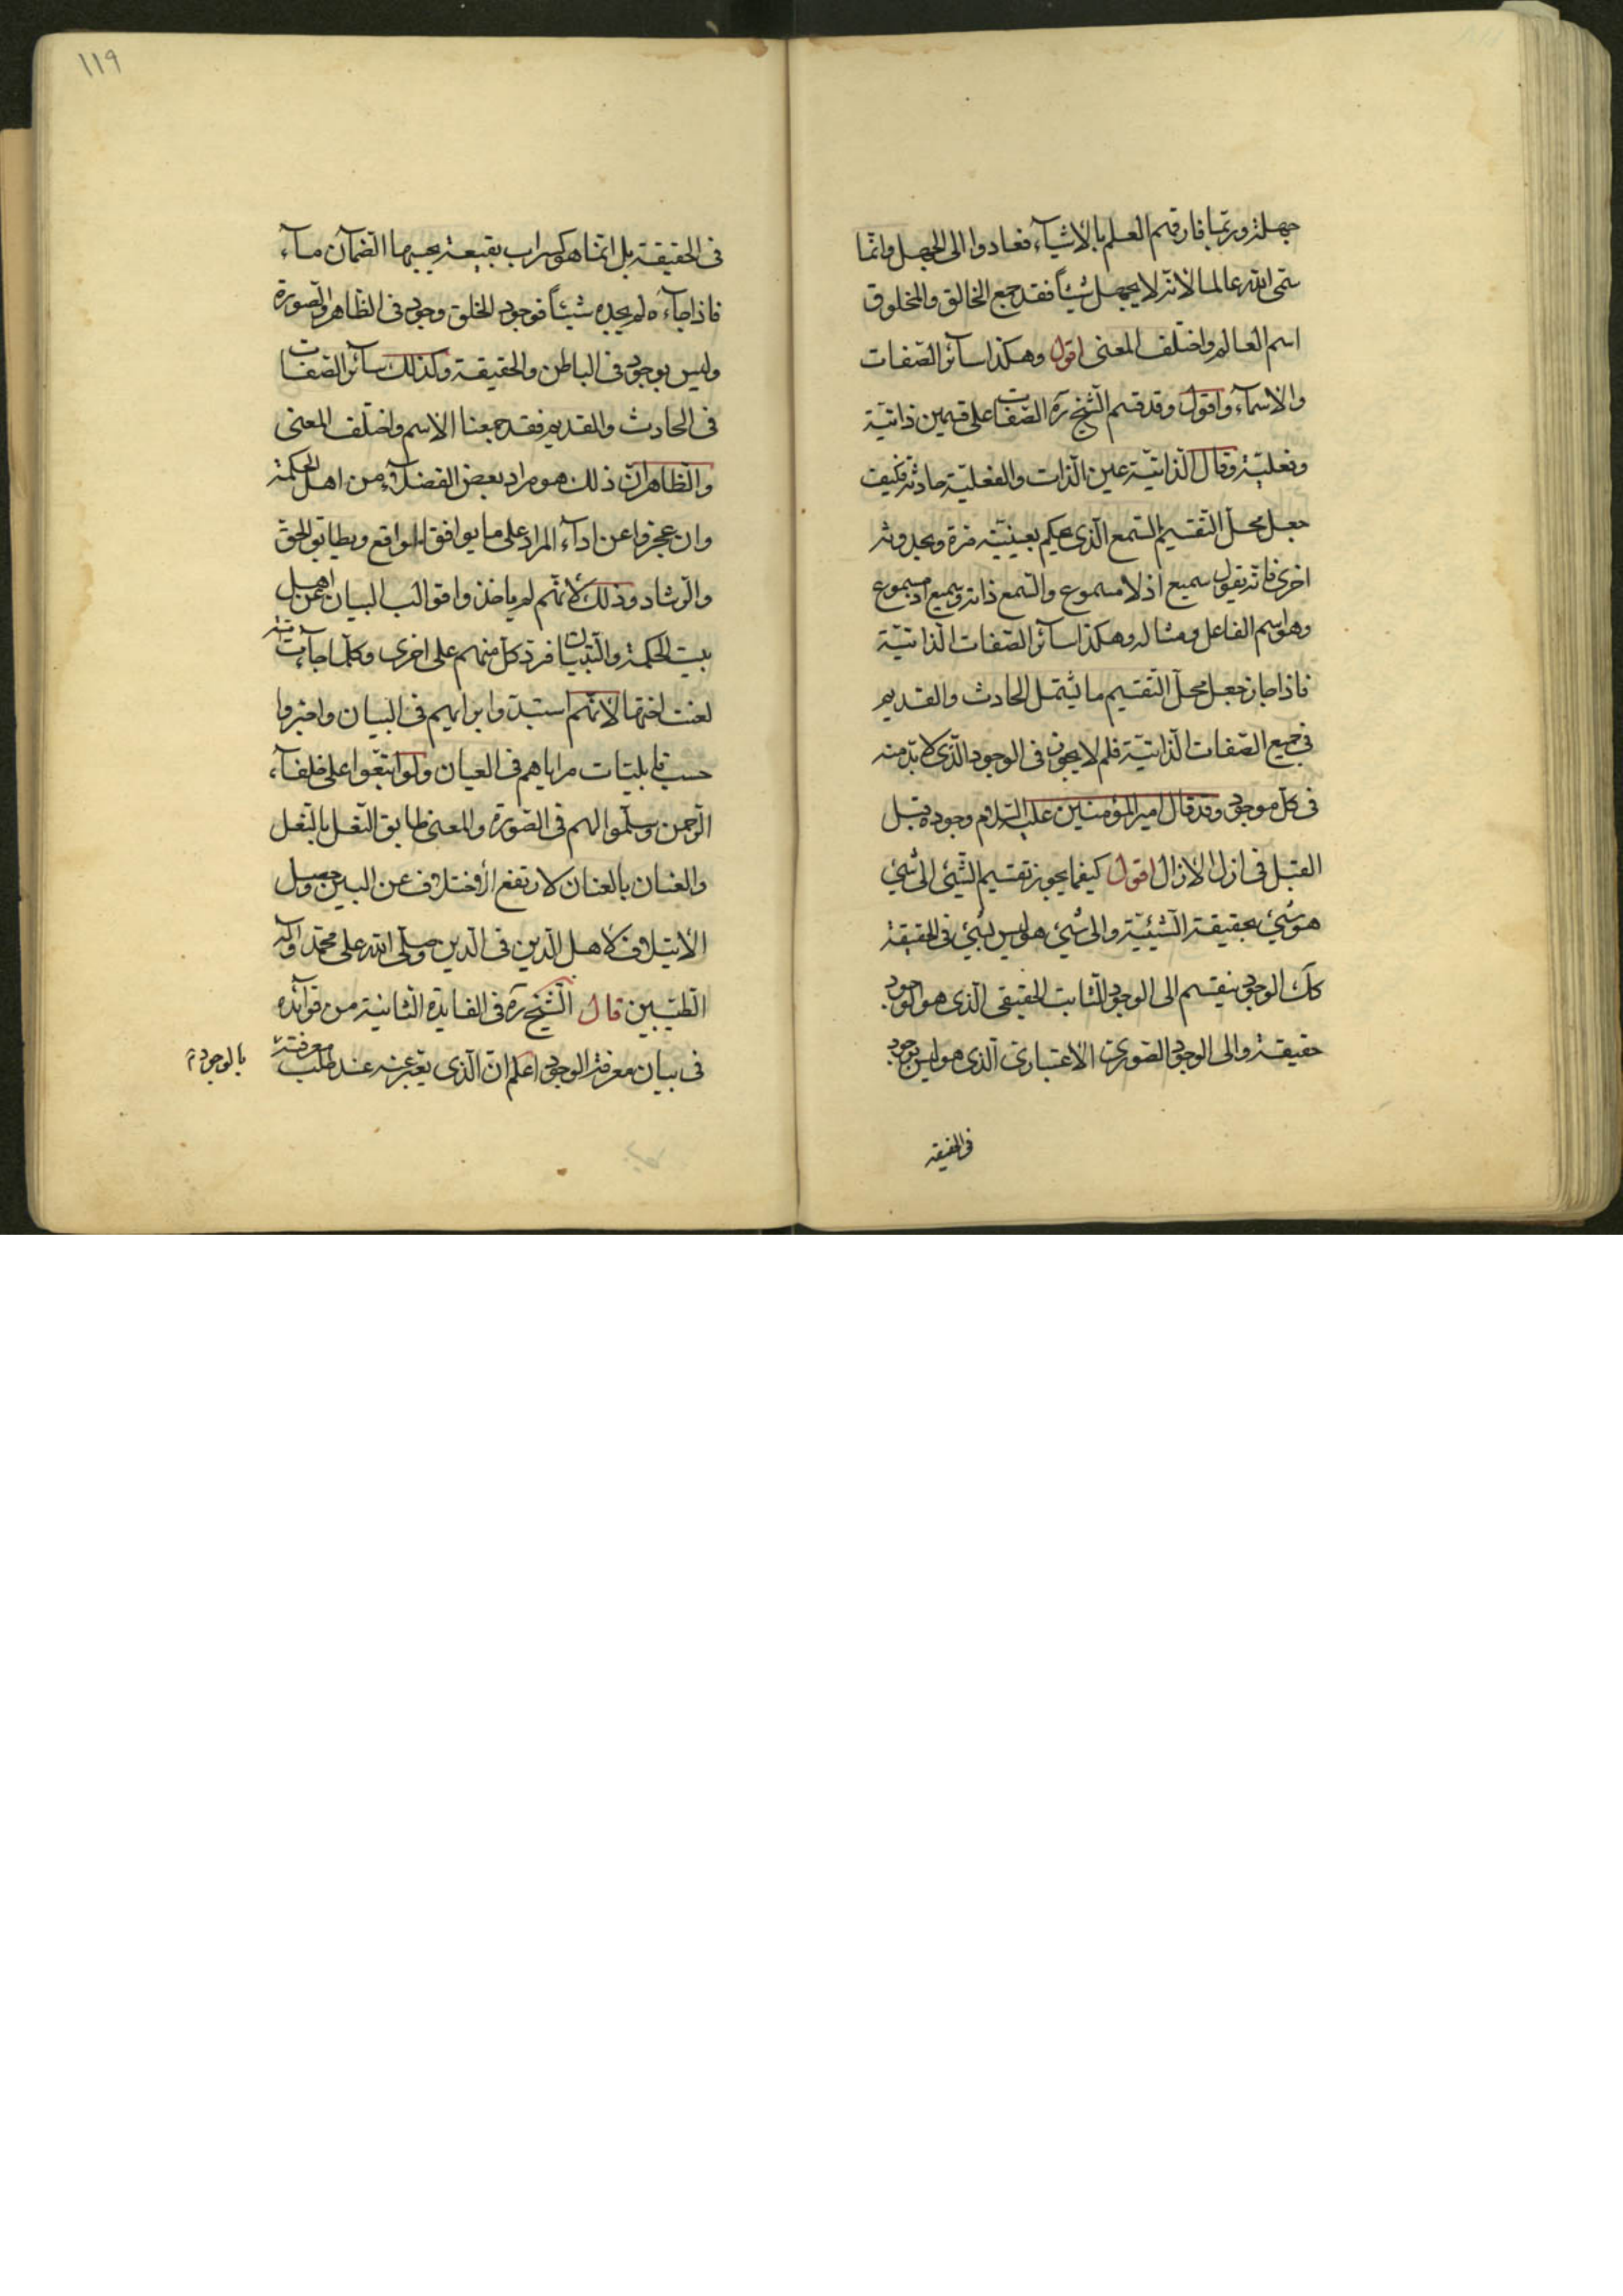 جهلة وربّما فارقهم العلم بالأشيآء فعادوا الى الجهل وانّما
سمّى الله عالما لانه لا يجهل شيئاً فقد جمع الخالق والمخلوق
اسم العالم واختلف المعنى اقول وهكذا سآئر الصّفات
والاسمآء واقول وقد قسم الشّيخ ره الصّفات على قسمين ذاتيّة
وفعليّة وقال الذّاتيّة عين الذّات والفعليّة حادثة فكيف
جعل محلّ التّقسيم السّمع الّذى حكم بعينيّته مرّة وبحدوثه
اخرى فانه يقول سميع اذ لا مسموع والسّمع ذاته وسميع اذ مسموع
وهو اسم الفاعل ومثاله وهكذا سآئر الصّفات الذّاتيّة
فاذا جاز جعل محلّ التّقسيم ما يشمل الحادث والقديم
فى جميع الصّفات الذّاتيّة فلم لا يجوز فى الوجود الّذى لا بدّ منه
فى كلّ موجود وقد قال امير المؤمنين عليه السّلام وجوده قبل
القبل فى ازل الازال اقول كيفما يجوز تقسيم الشّئ الى شئ
هو شئ بحقيقة الشّيئيّة والى شئ هو ليس بشئ فى الحقيقة
كك الوجود ينقسم الى الوجود الثّابت الحقيقى الّذى هو الوجود
حقيقة والى الوجود الصّورى الاعتبارى الّذى هو ليس بوجود
فى الحقيقه
١١٩
فى الحقيقة بل انّما هو كسراب بقيعة يحسبها الضّمآن مآء
فاذا جآءه لم يجده شيئاً فوجود الخلق وجود فى الظّاهر والصّورة
وليس بوجود فى الباطن والحقيقة وكذلك سآئر الصّفات
فى الحادث والقديم فقد جمعنا الاسم واختلف المعنى
والظّاهر انّ ذلك هو مراد بعض الفضلآء من اهل الحكمة
وان عجزوا عن ادآء المراد على ما يوافق الواقع ويطابق الحق
والرّشاد وذلك لانّهم لم ياخذوا قوالب البيان عن اهل
بيت الحكمة والتّبيان فردّ كلّ منهم على اخرى وكلّما جآءت امّة
لعنت اختها لانّهم استبدّوا برايهم فى البيان واخبروا
حسب قابليّات مراياهم فى العيان ولو اتّبعوا على خلفآء
الرّحمن وسلّموا لهم فى الصّورة والمعنى طابق النّعل بالنّعل
والعنان بالعنان لارتفع الاختلاف عن البين وحصل
الايتلاف لاهل الدّين فى الدّين وصلّى الله على محمّد وآله
الطّيّبين قال الشّيخ ره فى الفايدة الثّانية من فوآئده
فى بيان معرفة الوجود اعلم انّ الّذى يعبّر عنه عند طلب معرفته
بالوجود